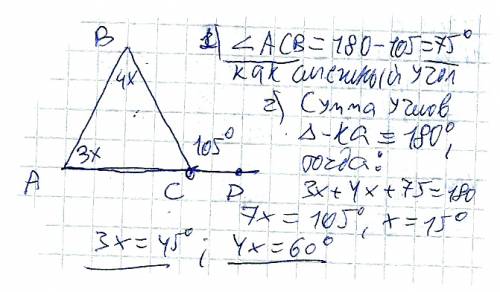 B
1) ∠ACB = 180 - 105 = 75°
как смежный угол
4x
2) Сумма углов
105°
Δ-ка = 180°,
3x
тогда:
A
C
D
3x + 4x + 75 = 180
7x = 105°, x = 15°
3x = 45°; 4x = 60°